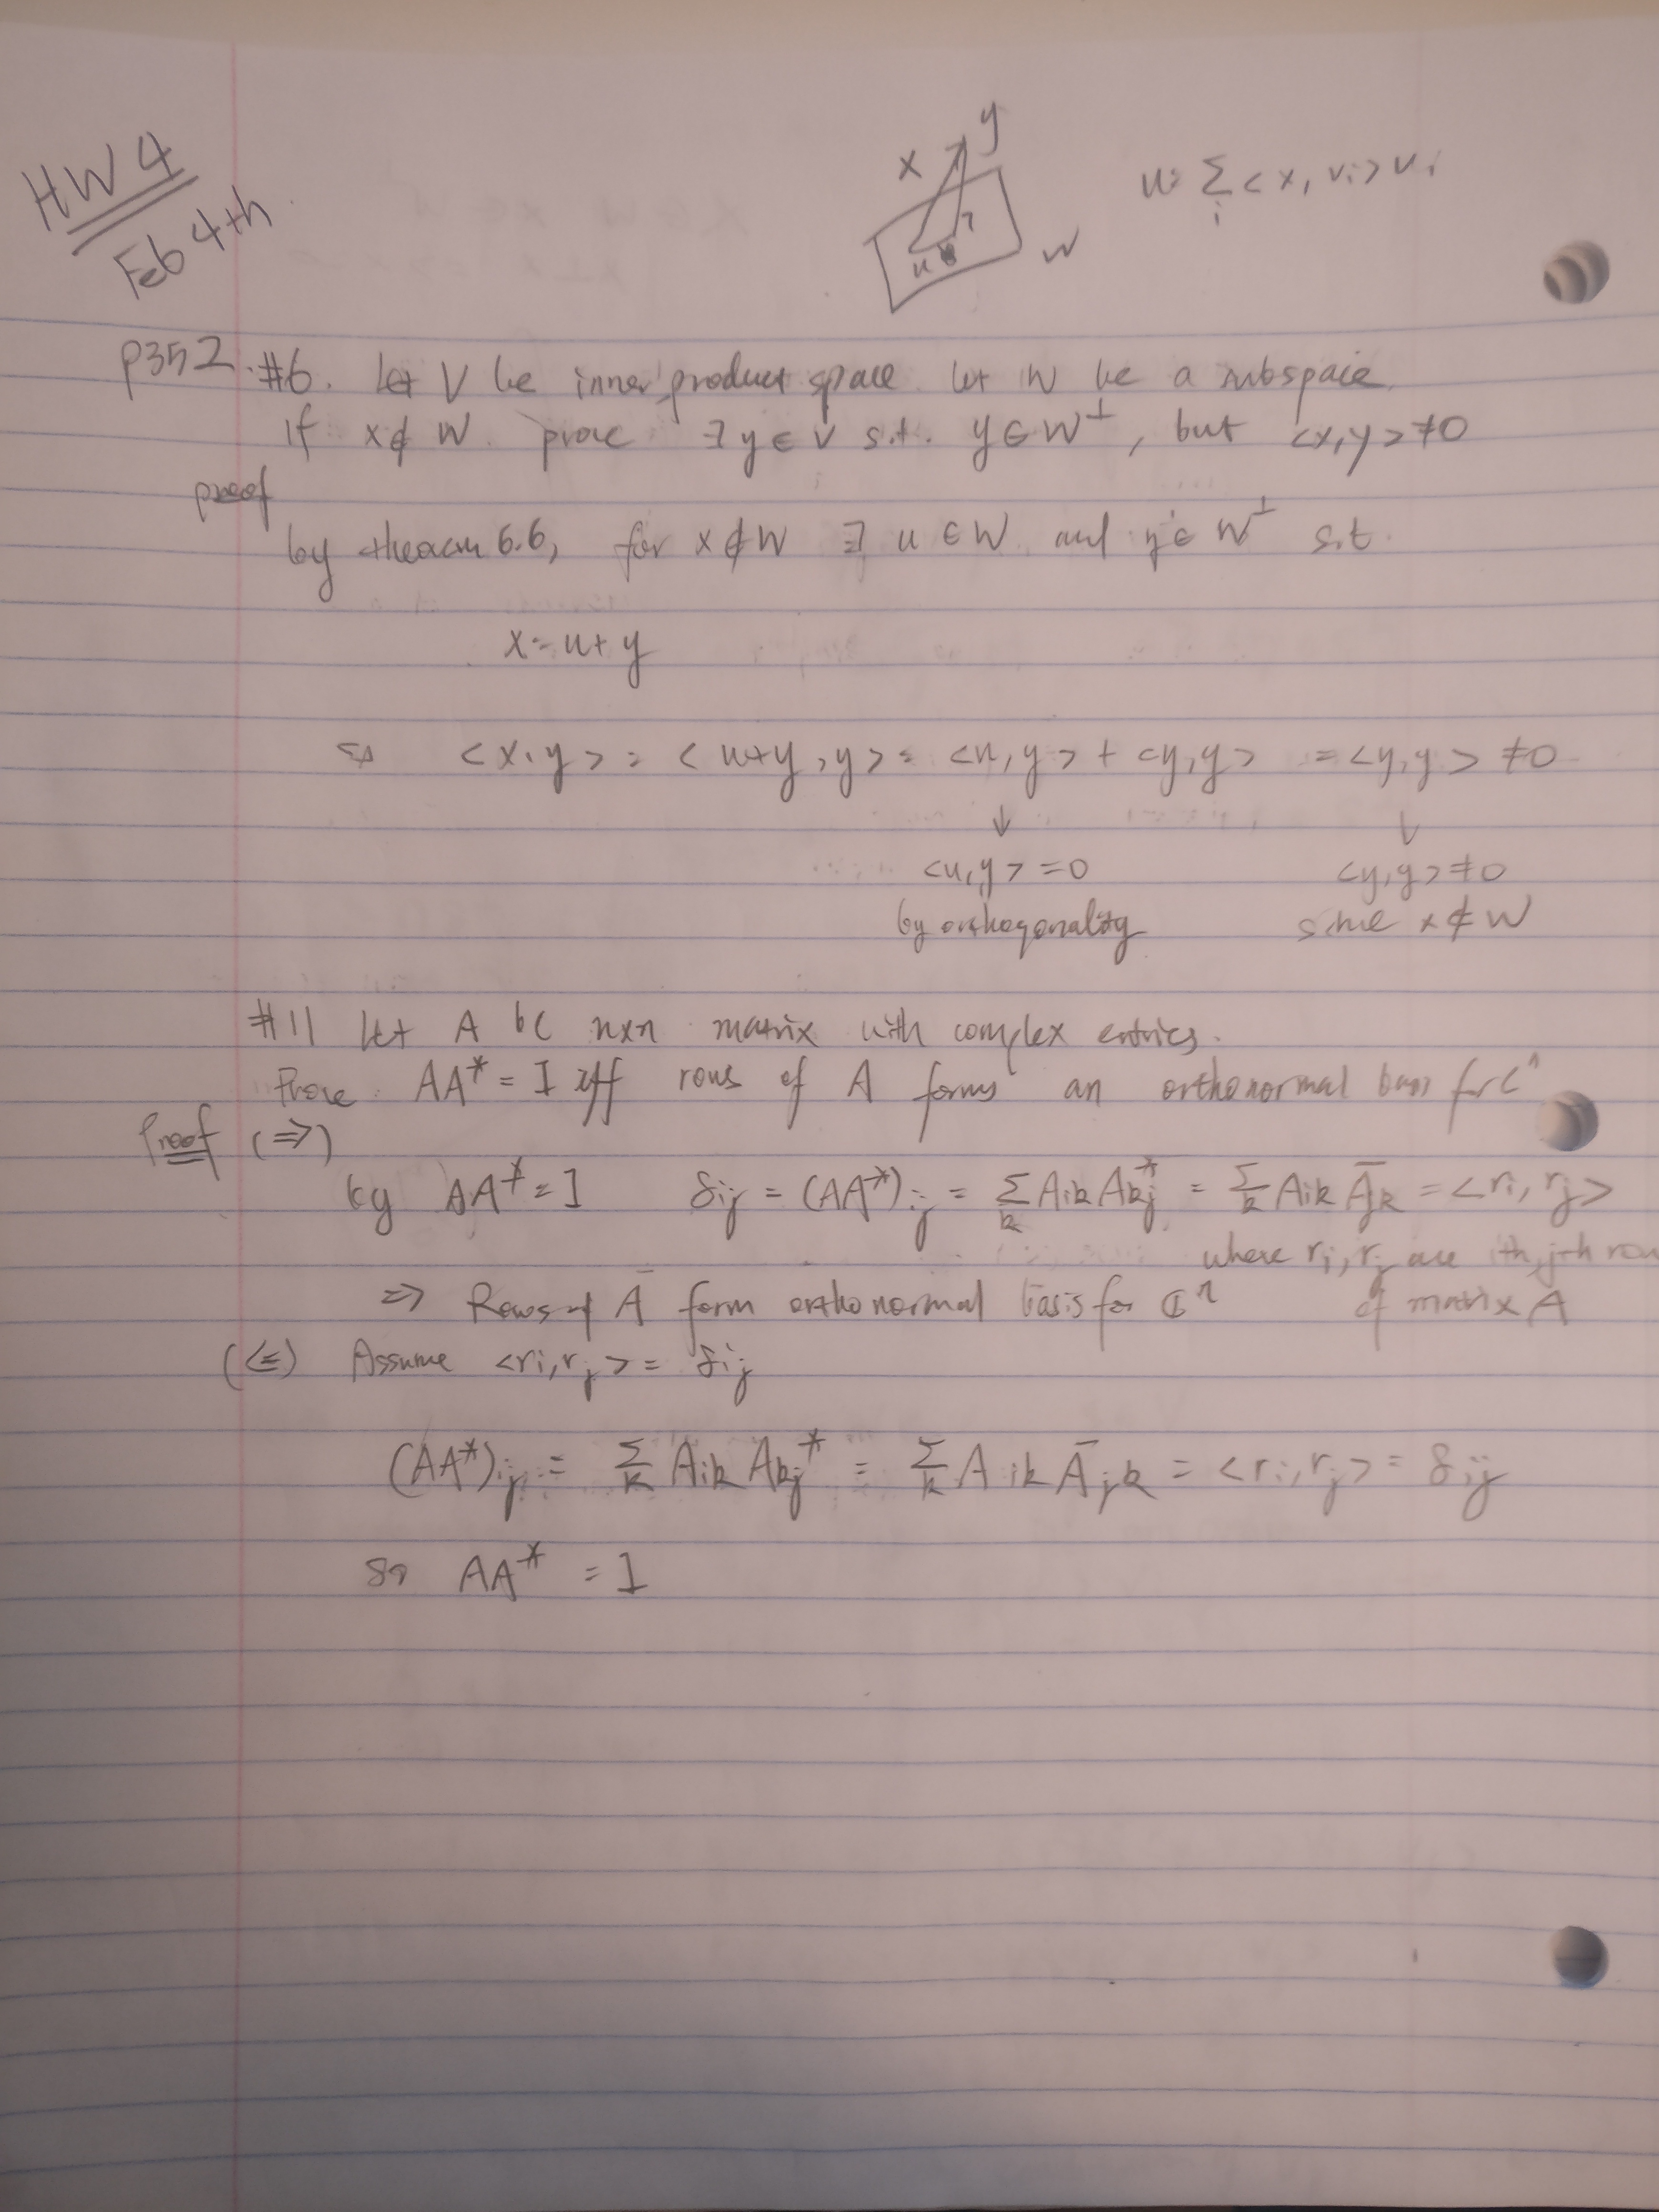 HW 4
Feb 4th
x y
u W
u = Σ_i <x, vi> vi
p352. #6. Let V be inner product space. Let W be a subspace.
If x∉W. prove ∃ y∈V s.t. y∈W^⊥, but <x,y> ≠0
proof
by theorem 6.6, for x∉W ∃ u∈W and y∈W^⊥ s.t.
x = u+y
so <x,y> = <u+y,y> = <u,y> + <y,y> = <y,y> ≠0
↓ ↓
<u,y> =0 <y,y> ≠0
by orthogonality since x∉W
#11 Let A be nxn matrix with complex entries.
Prove AA* = I iff rows of A forms an orthonormal basis for C^n
Proof (⇒)
by AA* = I δij = (AA*)ij = Σ_k Aik A*kj = Σ_k Aik Ājk = <ri, rj>
where ri, rj are ith, jth row
of matrix A
⇒ Rows of A form orthonormal basis for C^n
(⇐) Assume <ri, rj> = δij
(AA*)ij = Σ_k Aik Akj* = Σ_k Aik Ājk = <ri, rj> = δij
So AA* = I